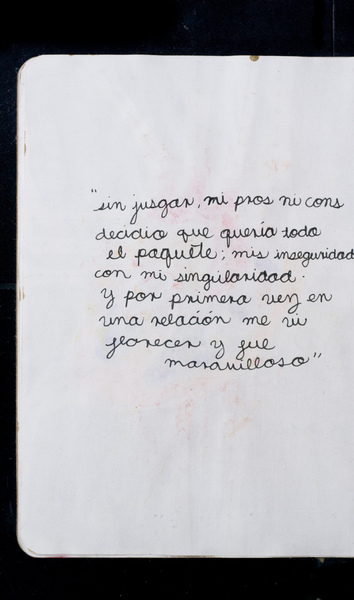 "sin jusgar, mi pros ni cons
decidio que quería todo
el paquete; mis inseguridad
con mi singularidad.
y por primera vez en
una relación me vi
florecer y fue
maravilloso"